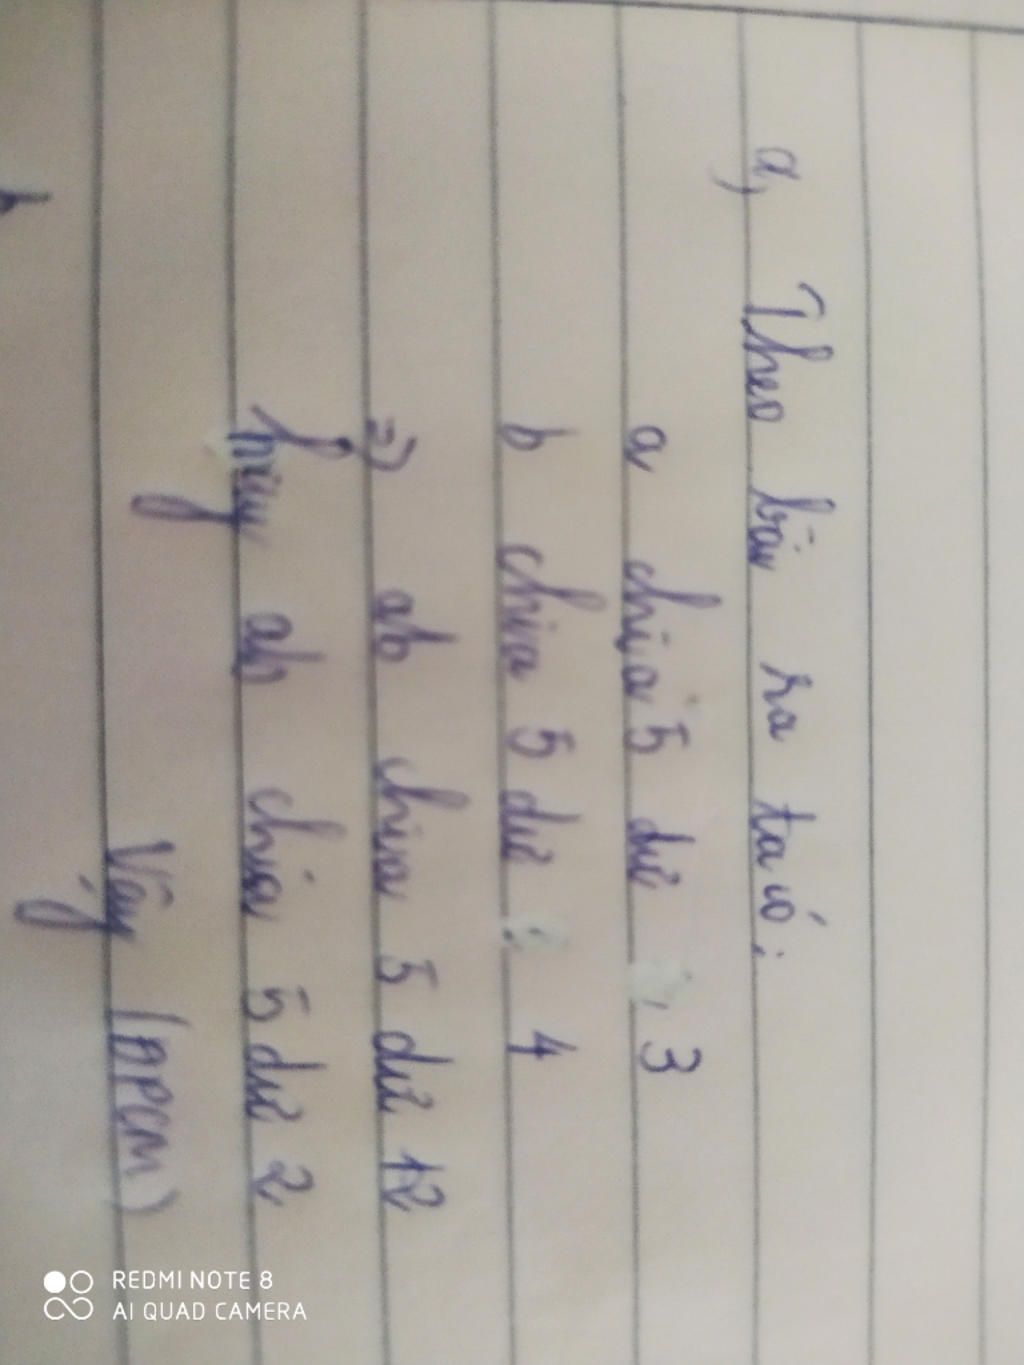 a, Theo bài ra ta có:
a chia 5 dư 3
b chia 5 dư : 4
=> ab chia 5 dư 12
hay ab chia 5 dư 2
Vậy (ĐPCM)
REDMI NOTE 8
AI QUAD CAMERA